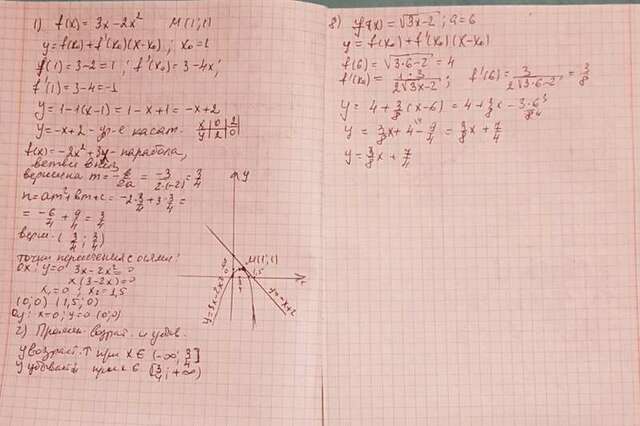 1) f(x) = 3x - 2x² M(1; 1)
y = f(x₀) + f'(x₀)(x - x₀); x₀ = 1
f(1) = 3 - 2 = 1; f'(x₀) = 3 - 4x;
f'(1) = 3 - 4 = -1
y = 1 - 1(x - 1) = 1 - x + 1 = -x + 2
y = -x + 2 - ур-е касат.
x 0 2
y 2 0
f(x) = -2x² + 3x - парабола,
ветви вниз
вершина m = -b/2a = -3/2·(-2) = 3/4
n = am² + bm + c = -2·3/4 + 3·3/4 =
= -6/4 + 9/4 = 3/4
верш. (3/4; 3/4)
точки пересечения с осями:
0x: y = 0 3x - 2x² = 0
x(3 - 2x) = 0
x₁ = 0; x₂ = 1,5
(0; 0) (1,5; 0)
0y: x = 0; y = 0 (0; 0)
2) Промеж. возраст. и убыв.
y возраст. ↑ при x ∈ (-∞; 3/4]
y убывает ↓ при x ∈ [3/4; +∞)
y
M(1; 1)
1,5
x
y = 3x - 2x²
y = -x + 2
8) f(x) = √3x - 2; a = 6
y = f(x₀) + f'(x₀)(x - x₀)
f(6) = √3·6 - 2 = 4
f'(x₀) = 1·3/2√3x - 2; f'(6) = 3/2√3·6 - 2 = 3/8
y = 4 + 3/8(x - 6) = 4 + 3/8x - 3·6/8
y = 3/8x + 4 - 9/4 = 3/8x + 7/4
y = 3/8x + 7/4